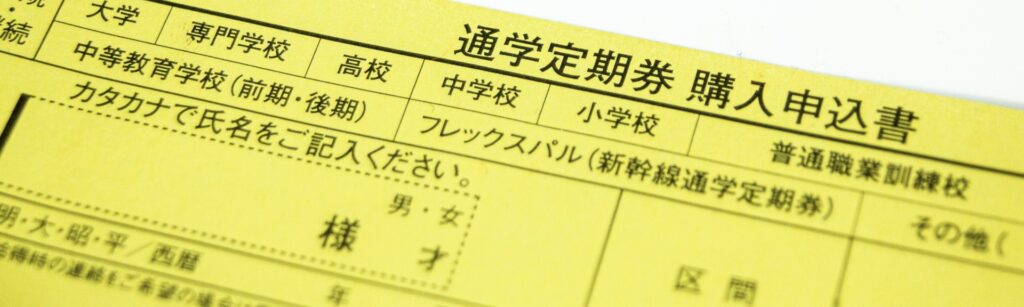 通学定期券 購入申込書
継続
大学 専門学校 高校 中学校 小学校 普通職業訓練校
中等教育学校(前期・後期) フレックスパル(新幹線通学定期券) その他(
カタカナで氏名をご記入ください。
男・女
様 才
区間
明・大・昭・平/西暦
年
の連絡をご希望の場合は